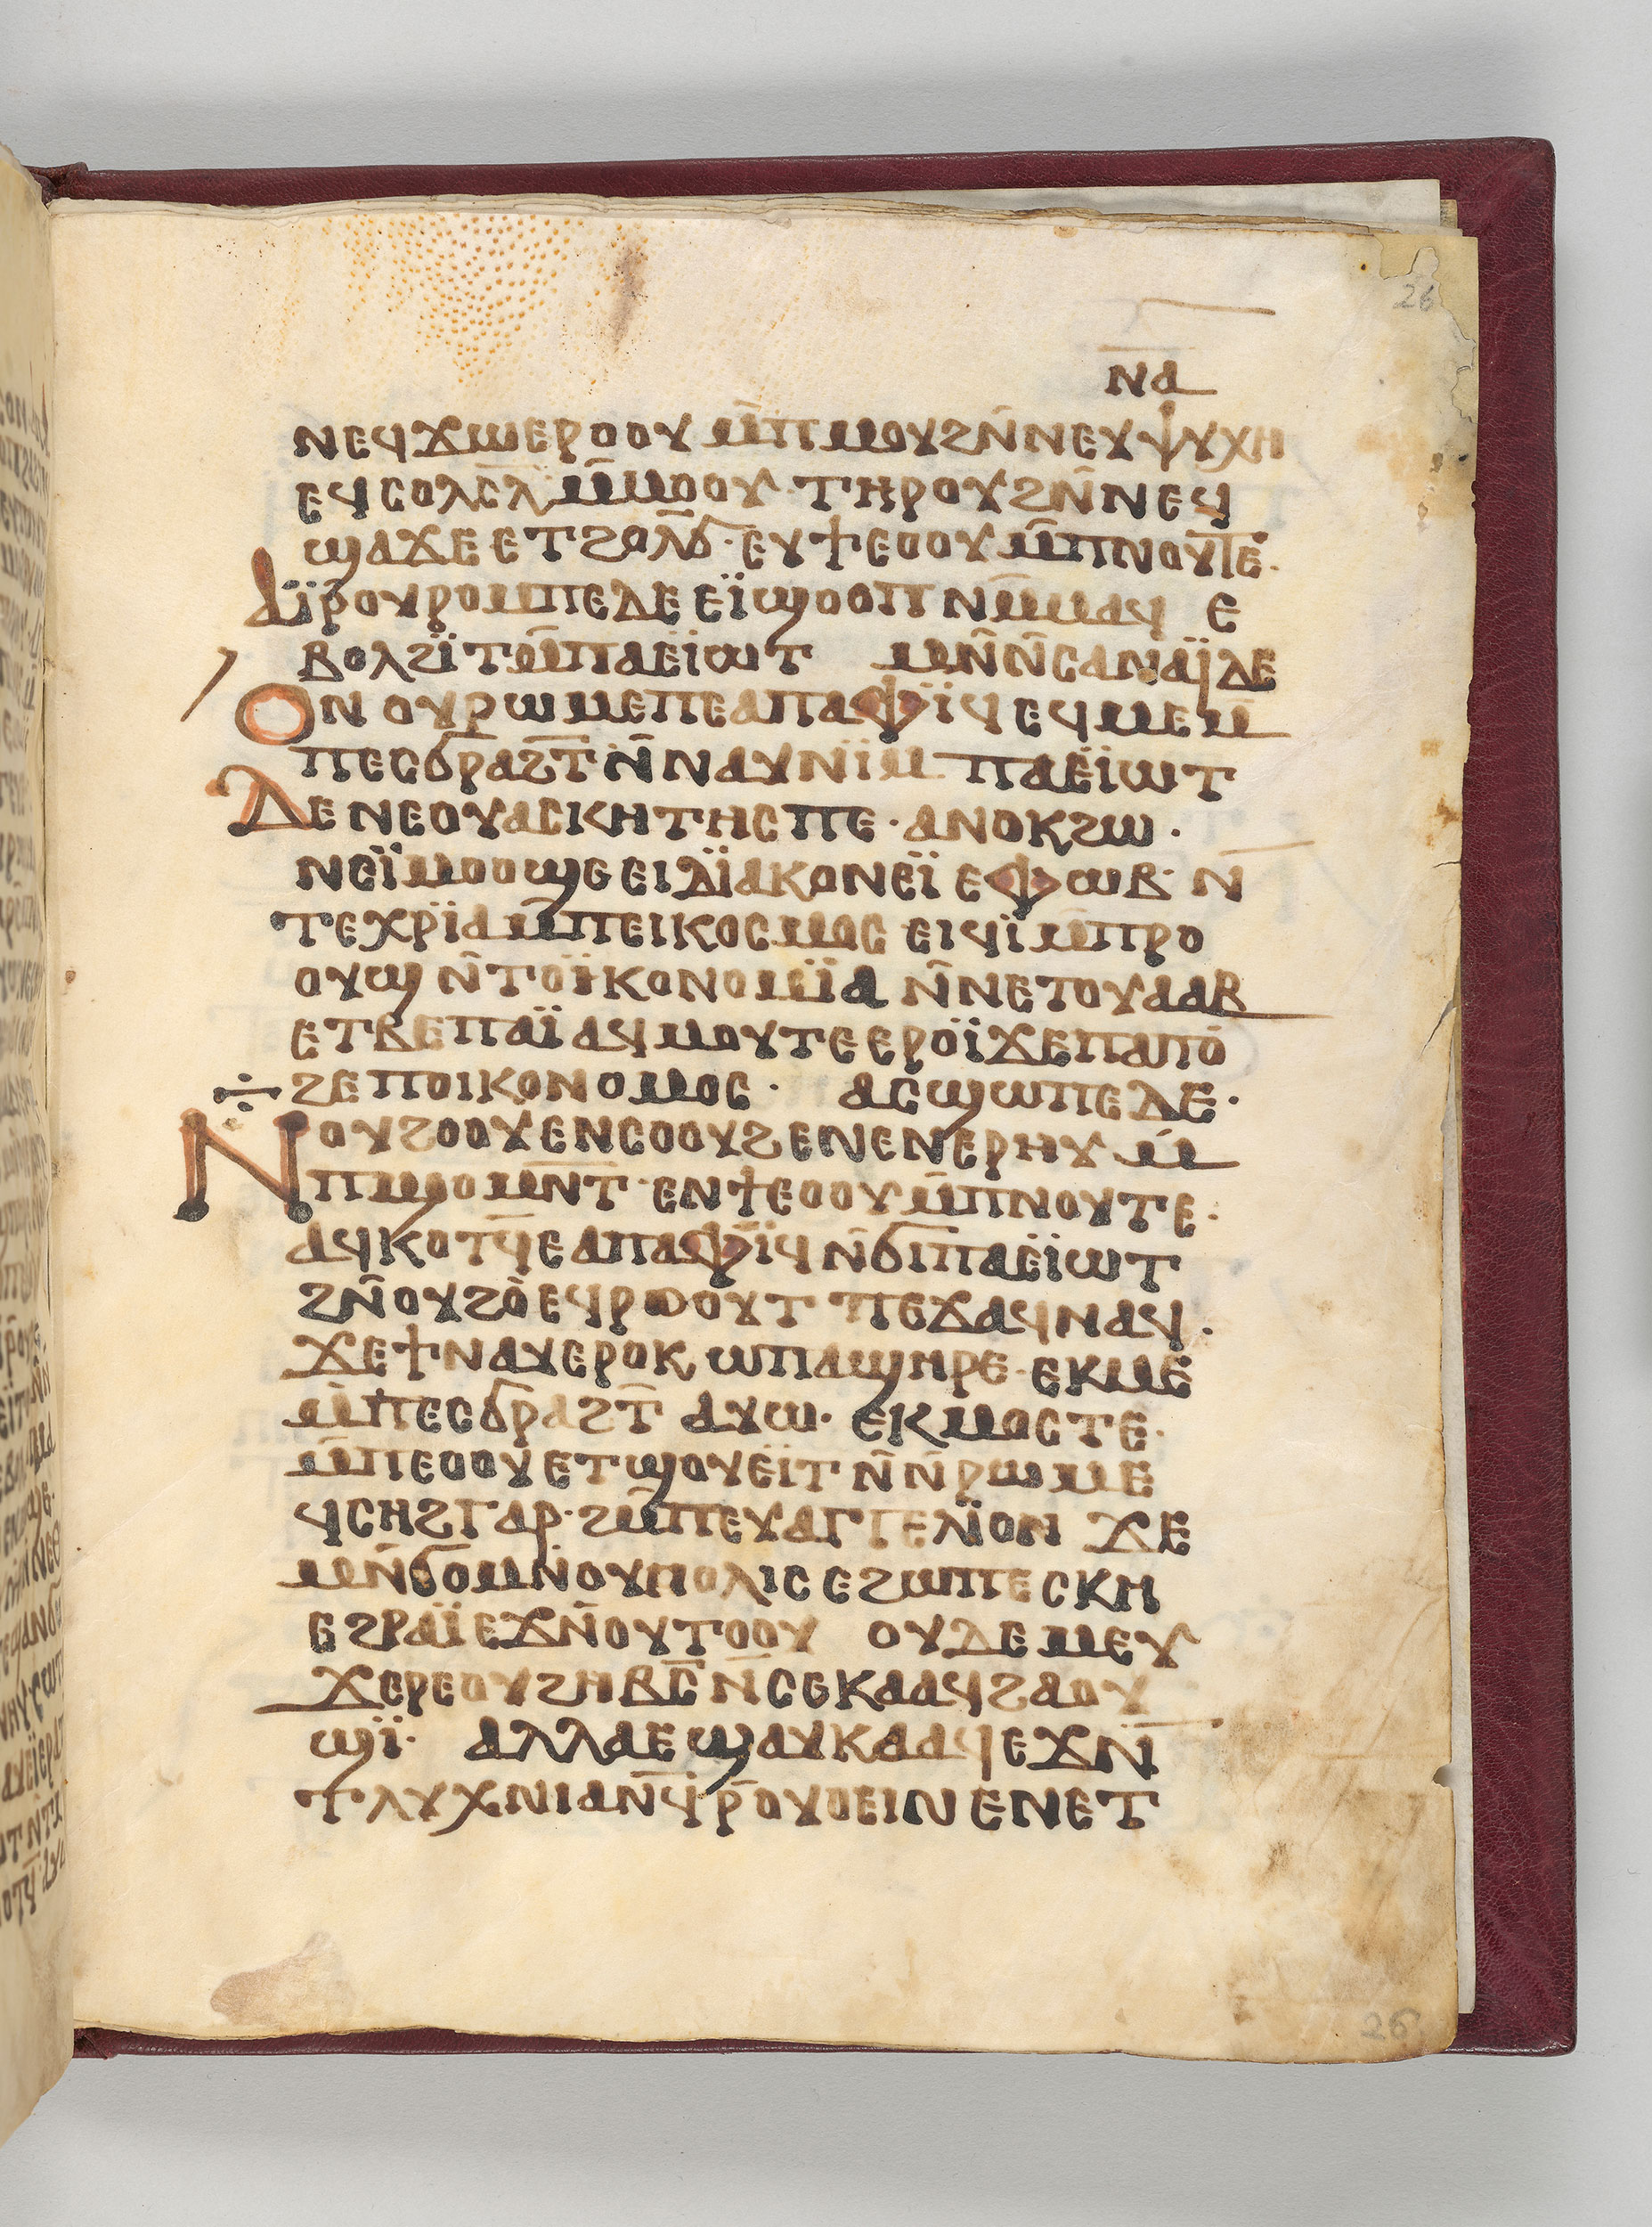 26
ⲛⲁ
ⲛⲉϥϫⲱⲉⲣⲟⲟⲩ ⲙ̄ⲡⲙⲟⲩϩⲛ̄ⲛⲉⲩⲯⲩⲭⲏ
ⲉϥⲥⲟⲗⲥ̄ⲗ ⲙ̄ⲙⲟⲟⲩ ⲧⲏⲣⲟⲩϩⲛ̄ⲛⲉϥ
ϣⲁϫⲉⲉⲧϩⲟⲗϭ̄· ⲉⲩϯⲉⲟⲟⲩⲙ̄ⲡⲛⲟⲩⲧⲉ·
ⲁⲓ̈ⲣ̄ⲟⲩⲣⲟⲙⲡⲉⲇⲉⲉⲓ̈ϣⲟⲟⲡ ⲛⲙ̄ⲙⲁϥ ⲉ
ⲃⲟⲗϩⲓ̈ⲧⲟⲙ̄ⲡⲁⲉⲓ̈ⲱⲧ ⲙⲛ̄ⲛ̄ⲥⲁⲛⲁⲓ̈ⲇⲉ
ⲟⲛ ⲟⲩⲣⲱⲙⲉⲡⲉⲁⲡⲁⲫⲓ̈ϥ ⲉϥⲙⲉⲙ̄
ⲡⲉⲥϭⲣⲁϩⲧ̄ ⲛ̄ⲛⲁⲩⲛⲓ̈ⲙ ⲡⲁⲉⲓ̈ⲱⲧ
ⲇⲉ ⲛⲉⲟⲩⲁⲥⲕⲏⲧⲏⲥⲡⲉ· ⲁⲛⲟⲕϩⲱ·
ⲛⲉⲓ̈ⲙⲟⲟϣⲉ ⲉⲓⲇⲓ̈ⲁⲕⲟⲛⲉⲓ̈ ⲉⲫⲱⲃ· ⲛ̄
ⲧⲉⲭⲣⲓ̈ⲁⲙ̄ⲡⲉⲓⲕⲟⲥⲙⲟⲥ ⲉⲓϥⲓ̈ⲙ̄ⲡⲣⲟ
ⲟⲩϣ ⲛ̄ⲧⲟⲓ̈ⲕⲟⲛⲟⲙⲓ̈ⲁ ⲛ̄ⲛⲉⲧⲟⲩⲁⲁⲃ
ⲉⲧⲃⲉⲡⲁⲓ̈ ⲁϥⲙⲟⲩⲧⲉⲉⲣⲟⲓ̈ ϫⲉⲡⲁⲡⲟ̄
ϩⲉⲡⲟⲓⲕⲟⲛⲟⲙⲟⲥ· ⲁⲥϣⲱⲡⲉⲇⲉ·
ⲛⲟⲩϩⲟⲟⲩⲉⲛⲥⲟⲟⲩϩⲉⲛⲉⲛⲉⲣⲏⲩ ⲙ̄
ⲡϣⲟⲙⲛ̄ⲧ· ⲉⲛϯⲉⲟⲟⲩⲙ̄ⲡⲛⲟⲩⲧⲉ·
ⲁϥⲕⲟⲧϥ̄ⲉⲁⲡⲁⲫⲓ̈ϥ ⲛ̄ϭⲓⲡⲁⲉⲓ̈ⲱⲧ
ϩⲛ̄ⲟⲩϩⲟ̀ⲉϥⲣⲟⲟⲩⲧ ⲡⲉϫⲁϥⲛⲁϥ·
ϫⲉϯⲛⲁⲩⲉⲣⲟⲕ ⲱⲡⲁϣⲏⲣⲉ· ⲉⲕⲙⲉ
ⲙ̄ⲡⲉⲥϭⲣⲁϩⲧ̄ ⲁⲩⲱ· ⲉⲕⲙⲟⲥⲧⲉ·
ⲙ̄ⲡⲉⲟⲟⲩⲉⲧϣⲟⲩⲉⲓ̈ⲧ ⲛ̄ⲛ̄ⲣⲱⲙⲉ
ϥⲥⲏϩⲅⲁⲣ· ϩⲙ̄ⲡⲉⲩⲁⲅⲅⲉⲗⲓ̈ⲟⲛ ϫⲉ
ⲙⲛ̄ϭⲟⲙⲛ̄ⲟⲩⲡⲟⲗⲓⲥ ⲉϩⲱⲡⲉⲥⲕⲏ
ⲉϩⲣⲁⲓ̈ⲉϫⲛ̄ⲟⲩⲧⲟⲟⲩ ⲟⲩⲇⲉⲙⲉⲩ
ϫⲉⲣⲉⲟⲩϩⲏⲃⲥ̄ ⲛ̄ⲥⲉⲕⲁⲁϥϩⲁⲟⲩ
ϣⲓ̈· ⲁⲗⲗⲁⲉϣⲁⲩⲕⲁⲁϥⲉϫⲛ̄
ⲧⲗⲩⲭⲛⲓⲁⲛϥ̄ⲣ̄ⲟⲩⲟⲉⲓⲛ ⲉⲛⲉⲧ
26